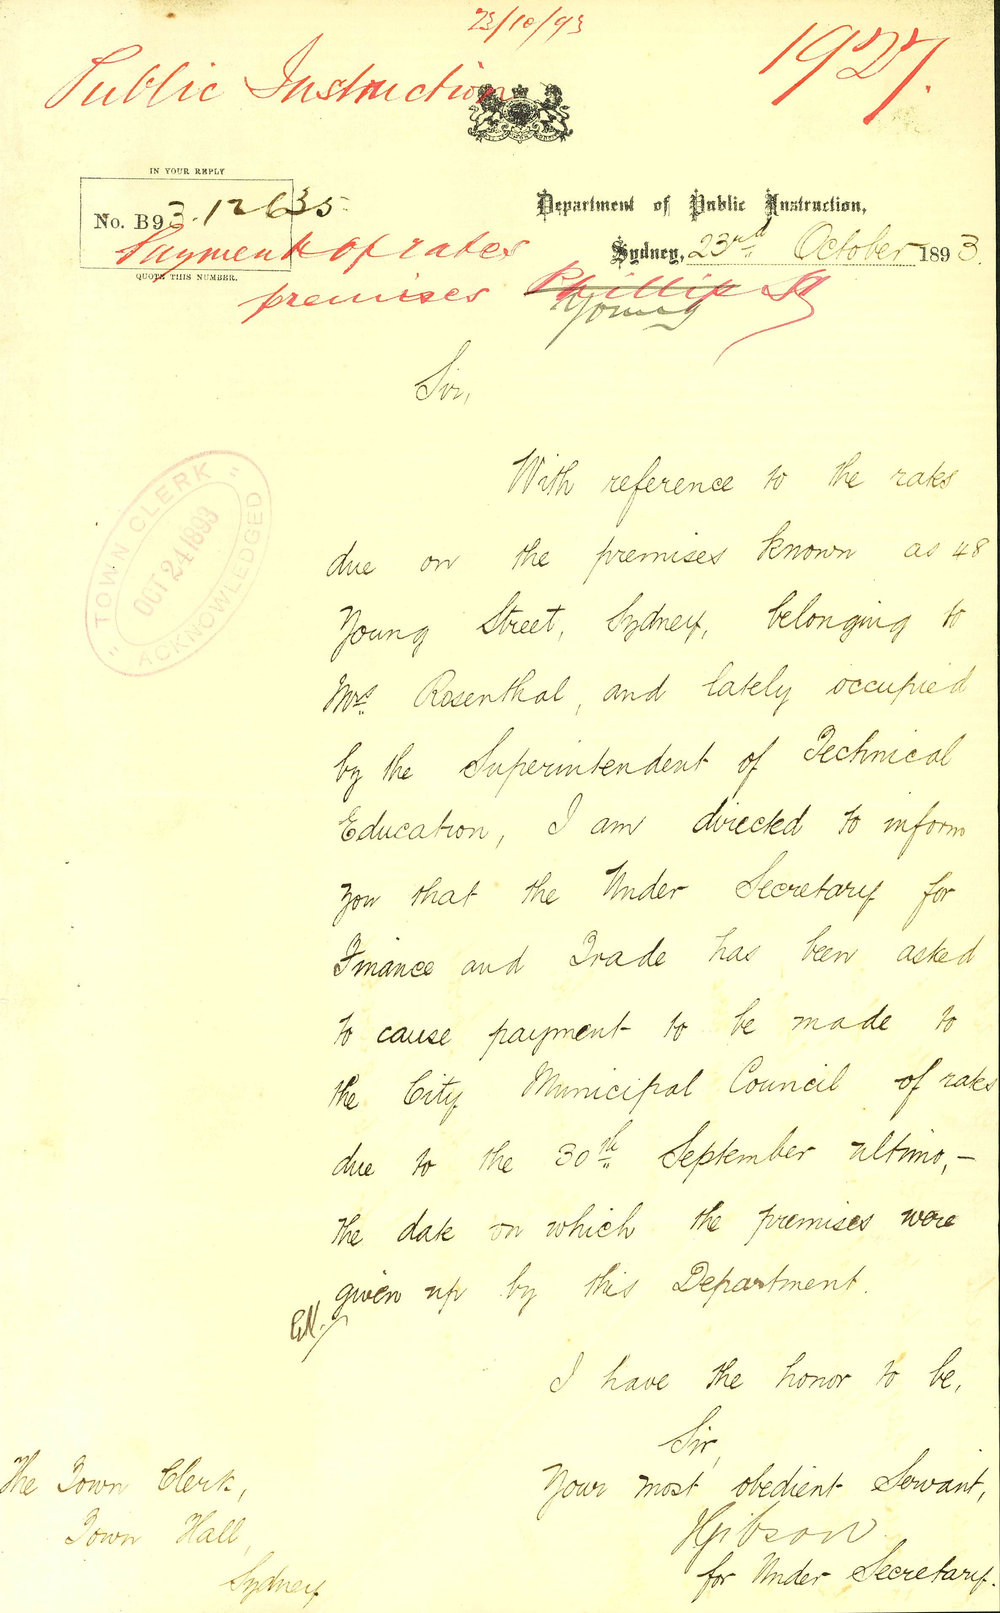 23/10/93
Public Instruction
1927.
IN YOUR REPLY
No. B93.12635
QUOTE THIS NUMBER.
Department of Public Instruction,
Sydney, 23rd October 1893.
Payment of rates
premises Phillip St
Young
Sir,
With reference to the rates
due on the premises known as 48
Young Street, Sydney, belonging to
Mrs. Rosenthal, and lately occupied
by the Superintendent of Technical
Education, I am directed to inform
you that the Under Secretary for
Finance and Trade has been asked
to cause payment to be made to
the City Municipal Council of rates
due to the 30th September ultimo,—
the date on which the premises were
given up by this Department.
"TOWN CLERK"
OCT 24 1893
ACKNOWLEDGED
I have the honor to be,
Sir,
Your most obedient Servant,
Gibson
for Under Secretary.
The Town Clerk,
Town Hall,
Sydney